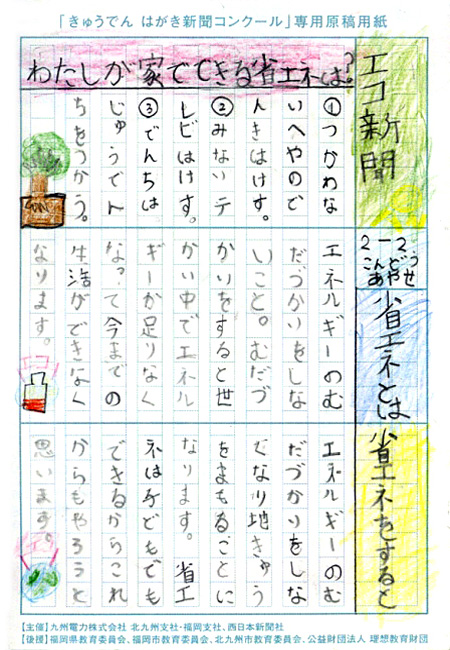 「きゅうでん はがき新聞コンクール」専用原稿用紙
エコ新聞
2-2
こんどう
あやせ
わたしが家でできる省エネは?
①つかわな
いへやので
んきはけす。
②みないテ
レビはけす。
③でんちは
じゅうでん
ちをつかう。
省エネとは
エネルギーのむ
だづかいをしな
いこと。むだづ
かいをすると世
かい中でエネル
ギーが足りなく
なって今までの
生活ができなく
なります。
省エネをすると
エネルギーのむ
だづかいをしな
くなり地きゅう
をまもることに
なります。省エ
ネは子どもでも
できるからこれ
からもやろうと
思います。
【主催】九州電力株式会社 北九州支社・福岡支社、西日本新聞社
【後援】福岡県教育委員会、福岡市教育委員会、北九州市教育委員会、公益財団法人 理想教育財団